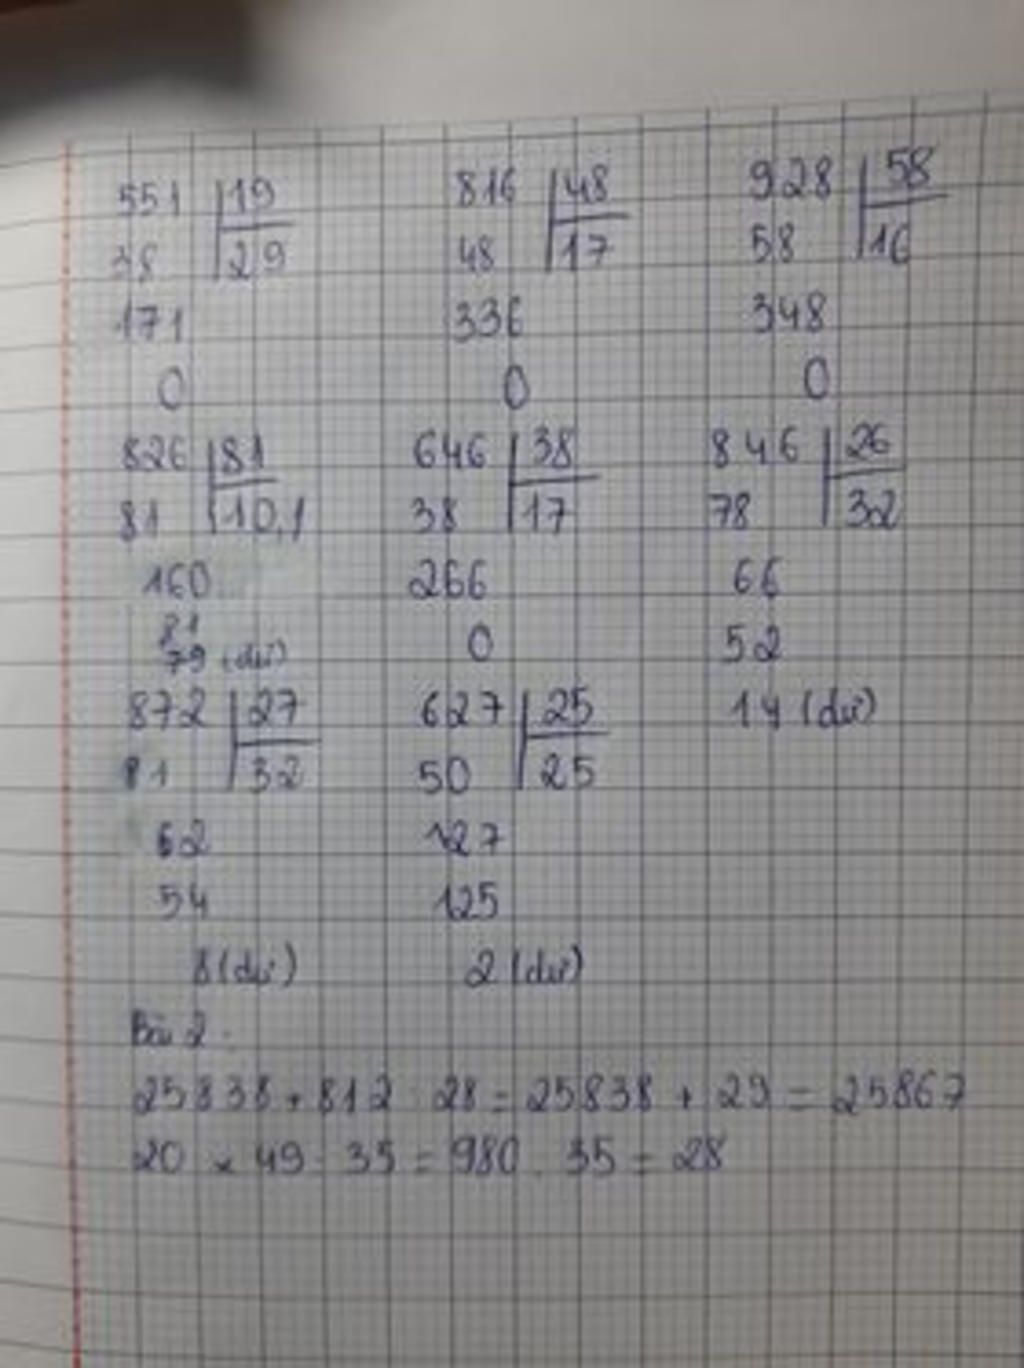 551 19 816 48 928 58
38 29 48 17 58 16
171 336 348
0 0 0
826 81 646 38 846 26
81 10,1 38 17 78 32
160 266 66
81 0 52
79 (dư)
872 27 627 25 14 (dư)
81 32 50 25
62 127
54 125
8 (dư) 2 (dư)
Bài 2:
25838 + 812 : 28 = 25838 + 29 = 25867
20 x 49 : 35 = 980 : 35 = 28